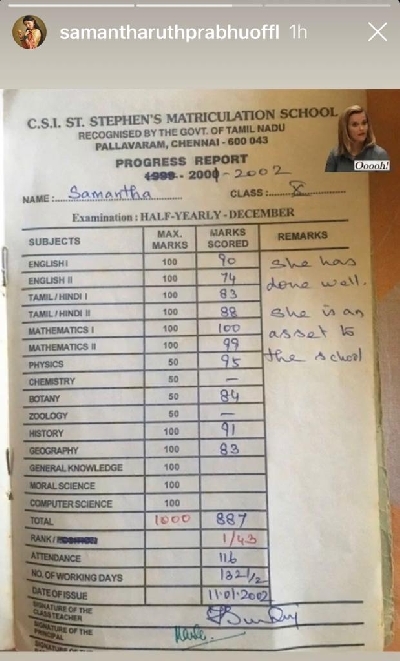 samantharuthprabhuoffl 1h
C.S.I. ST. STEPHEN'S MATRICULATION SCHOOL
RECOGNISED BY THE GOVT. OF TAMIL NADU
PALLAVARAM, CHENNAI - 600 043
Ooooh!
PROGRESS REPORT
1999 - 2001 - 2002
NAME : Samantha CLASS : X
Examination : HALF-YEARLY - DECEMBER
SUBJECTS MAX. MARKS MARKS SCORED REMARKS
ENGLISH I 100 90 She has
ENGLISH II 100 74 done well.
TAMIL / HINDI I 100 83
TAMIL / HINDI II 100 88 She is an
MATHEMATICS I 100 100 asset to
MATHEMATICS II 100 99 the school
PHYSICS 50 95
CHEMISTRY 50 —
BOTANY 50 84
ZOOLOGY 50 —
HISTORY 100 91
GEOGRAPHY 100 83
GENERAL KNOWLEDGE 100
MORAL SCIENCE 100
COMPUTER SCIENCE 100
TOTAL 1000 887
RANK / 1/43
ATTENDANCE 116
NO. OF WORKING DAYS 132 1/2
DATE OF ISSUE 11.01.2002
SIGNATURE OF THE
CLASS TEACHER
SIGNATURE OF THE
PRINCIPAL